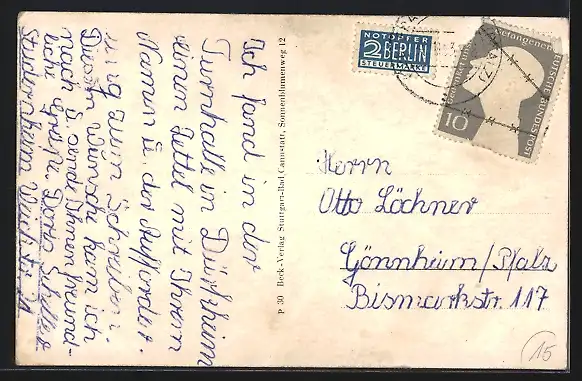 Ich fand in der
Turnhalle in Dürkheim
einen Zettel mit Ihrem
Namen u. der Aufforder-
ung zum Schreiben.
Diesem Wunsche kam ich
nach u. sende Ihnen freund-
liche Grüße. Doris
Studernheim
P 30 Beck-Verlag Stuttgart-Bad Cannstatt, Sonnenblumenweg 12
NOTOPFER
2 BERLIN
STEUERMARKE
Gefangenen
DEUTSCHE BUNDESPOST
10
Herrn
Otto Löchner
Gönnheim/Pfalz
Bismarkstr. 117
15